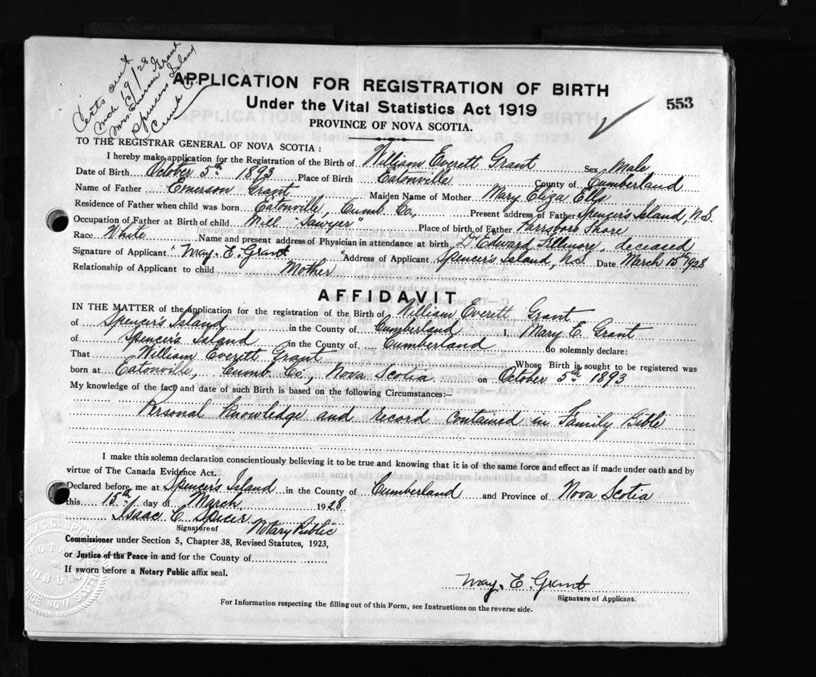 Certs sent
Mch 19/28
Mrs Emerson Grant
Spencers Island
Cumb Co
APPLICATION FOR REGISTRATION OF BIRTH
Under the Vital Statistics Act 1919
553
PROVINCE OF NOVA SCOTIA.
TO THE REGISTRAR GENERAL OF NOVA SCOTIA :
I hereby make application for the Registration of the Birth of William Everett Grant Sex Male
Date of Birth October 5th 1893 Place of Birth Eatonville County of Cumberland
Name of Father Emerson Grant Maiden Name of Mother Mary Eliza Ells
Residence of Father when child was born Eatonville, Cumb. Co., Present address of Father Spencer's Island, N.S.
Occupation of Father at Birth of child Mill "Sawyer" Place of birth of Father Parrsboro Shore
Race White Name and present address of Physician in attendance at birth Dr Edward Fillmore, deceased
Signature of Applicant "May. E. Grant" Address of Applicant Spencer's Island, N.S. Date March 15th 1928
Relationship of Applicant to child Mother
AFFIDAVIT
IN THE MATTER of the application for the registration of the Birth of William Everett Grant
of Spencer's Island in the County of Cumberland I, Mary E. Grant
of Spencer's Island in the County of Cumberland do solemnly declare:
That William Everett Grant Whose Birth is sought to be registered was
born at Eatonville, Cumb. Co., Nova Scotia on October 5th 1893
My knowledge of the fact and date of such Birth is based on the following Circumstances:—
Personal knowledge and record contained in Family Bible
I make this solemn declaration conscientiously believing it to be true and knowing that it is of the same force and effect as if made under oath and by
virtue of The Canada Evidence Act.
Declared before me at Spencer's Island in the County of Cumberland and Province of Nova Scotia
this 15th day of March 1928
Isaac C. Spicer
Signature of Notary Public
Commissioner under Section 5, Chapter 38, Revised Statutes, 1923,
or Justice of the Peace in and for the County of
If sworn before a Notary Public affix seal.
May. E. Grant
Signature of Applicant.
For Information respecting the filling out of this Form, see Instructions on the reverse side.